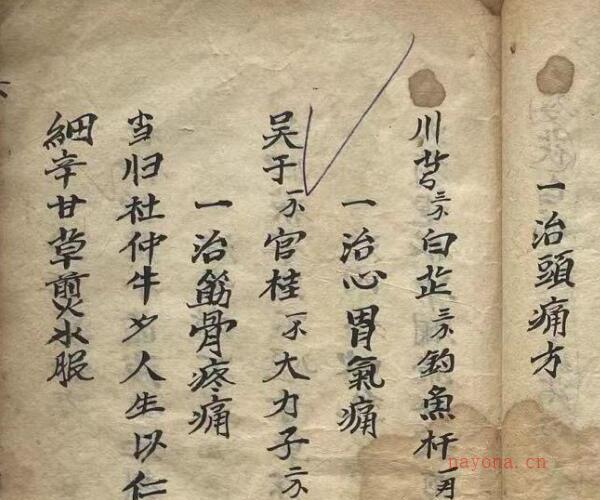 一治頭痛方
川芎三分白芷三分釣魚杆一
一治心胃氣痛
吴于一分官桂一分大力子二分
一治筋骨疼痛
当归杜仲牛夕人生以仁
細辛甘草煎水服
nayona.cn